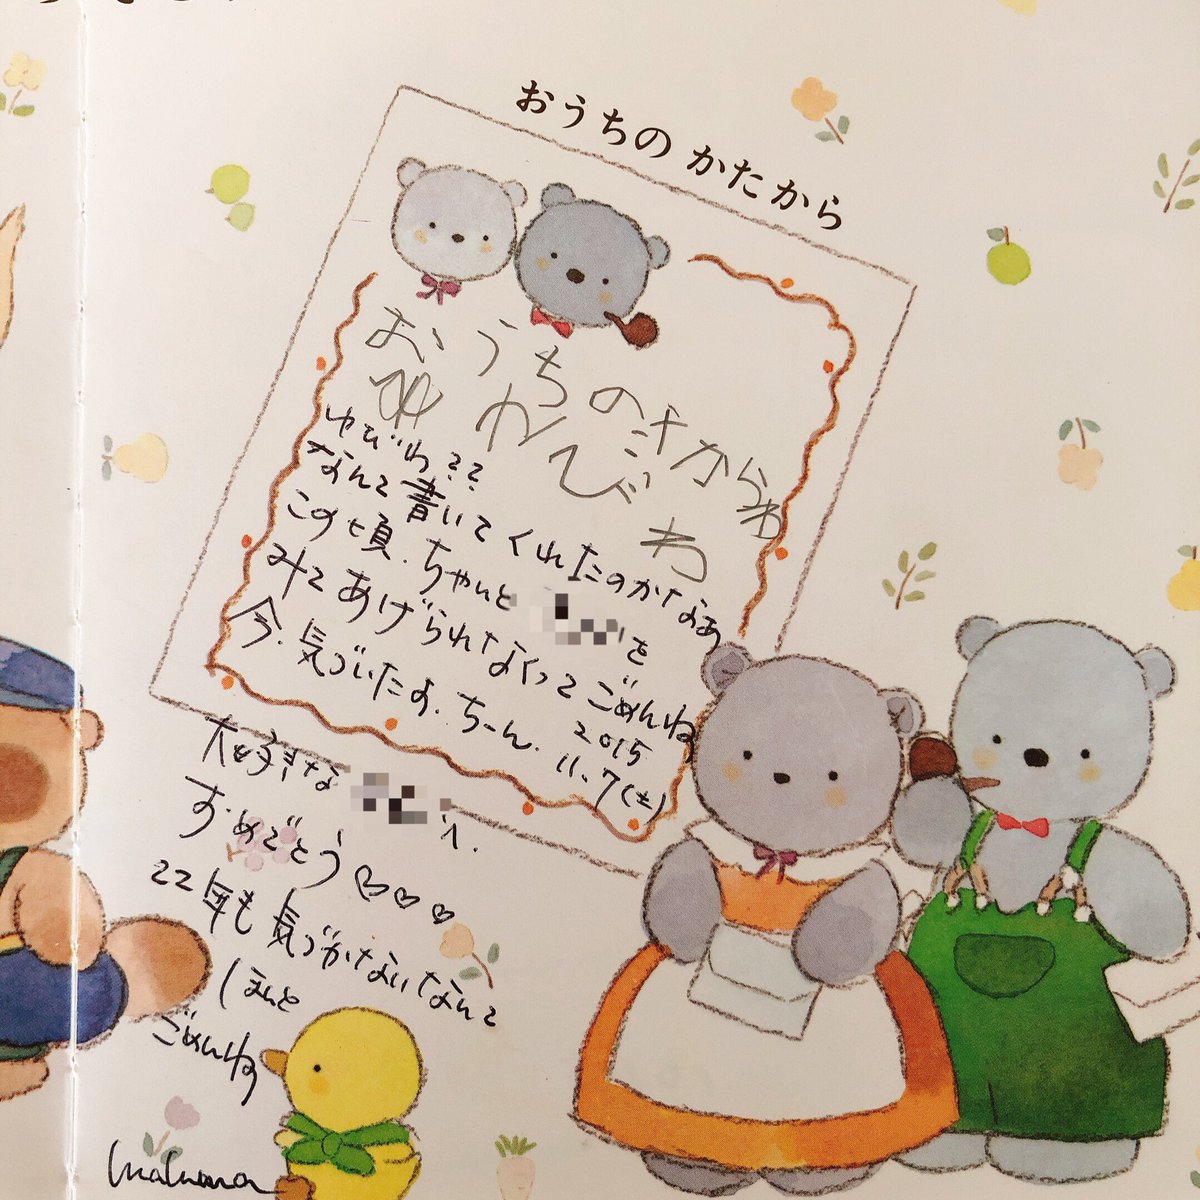 おうちの かたから
おうちのさから
わ
わんびわ
ゆびわ??
なんて書いてくれたのかなああ
この頃.ちゃんと を
みてあげられなくってごめんね
今.気づいたよ.ちーん.
2015
11.7(土)
大好きな へ.
おめでとう♡♡♡
22年も気づかないなんて
ほんと
ごめんね